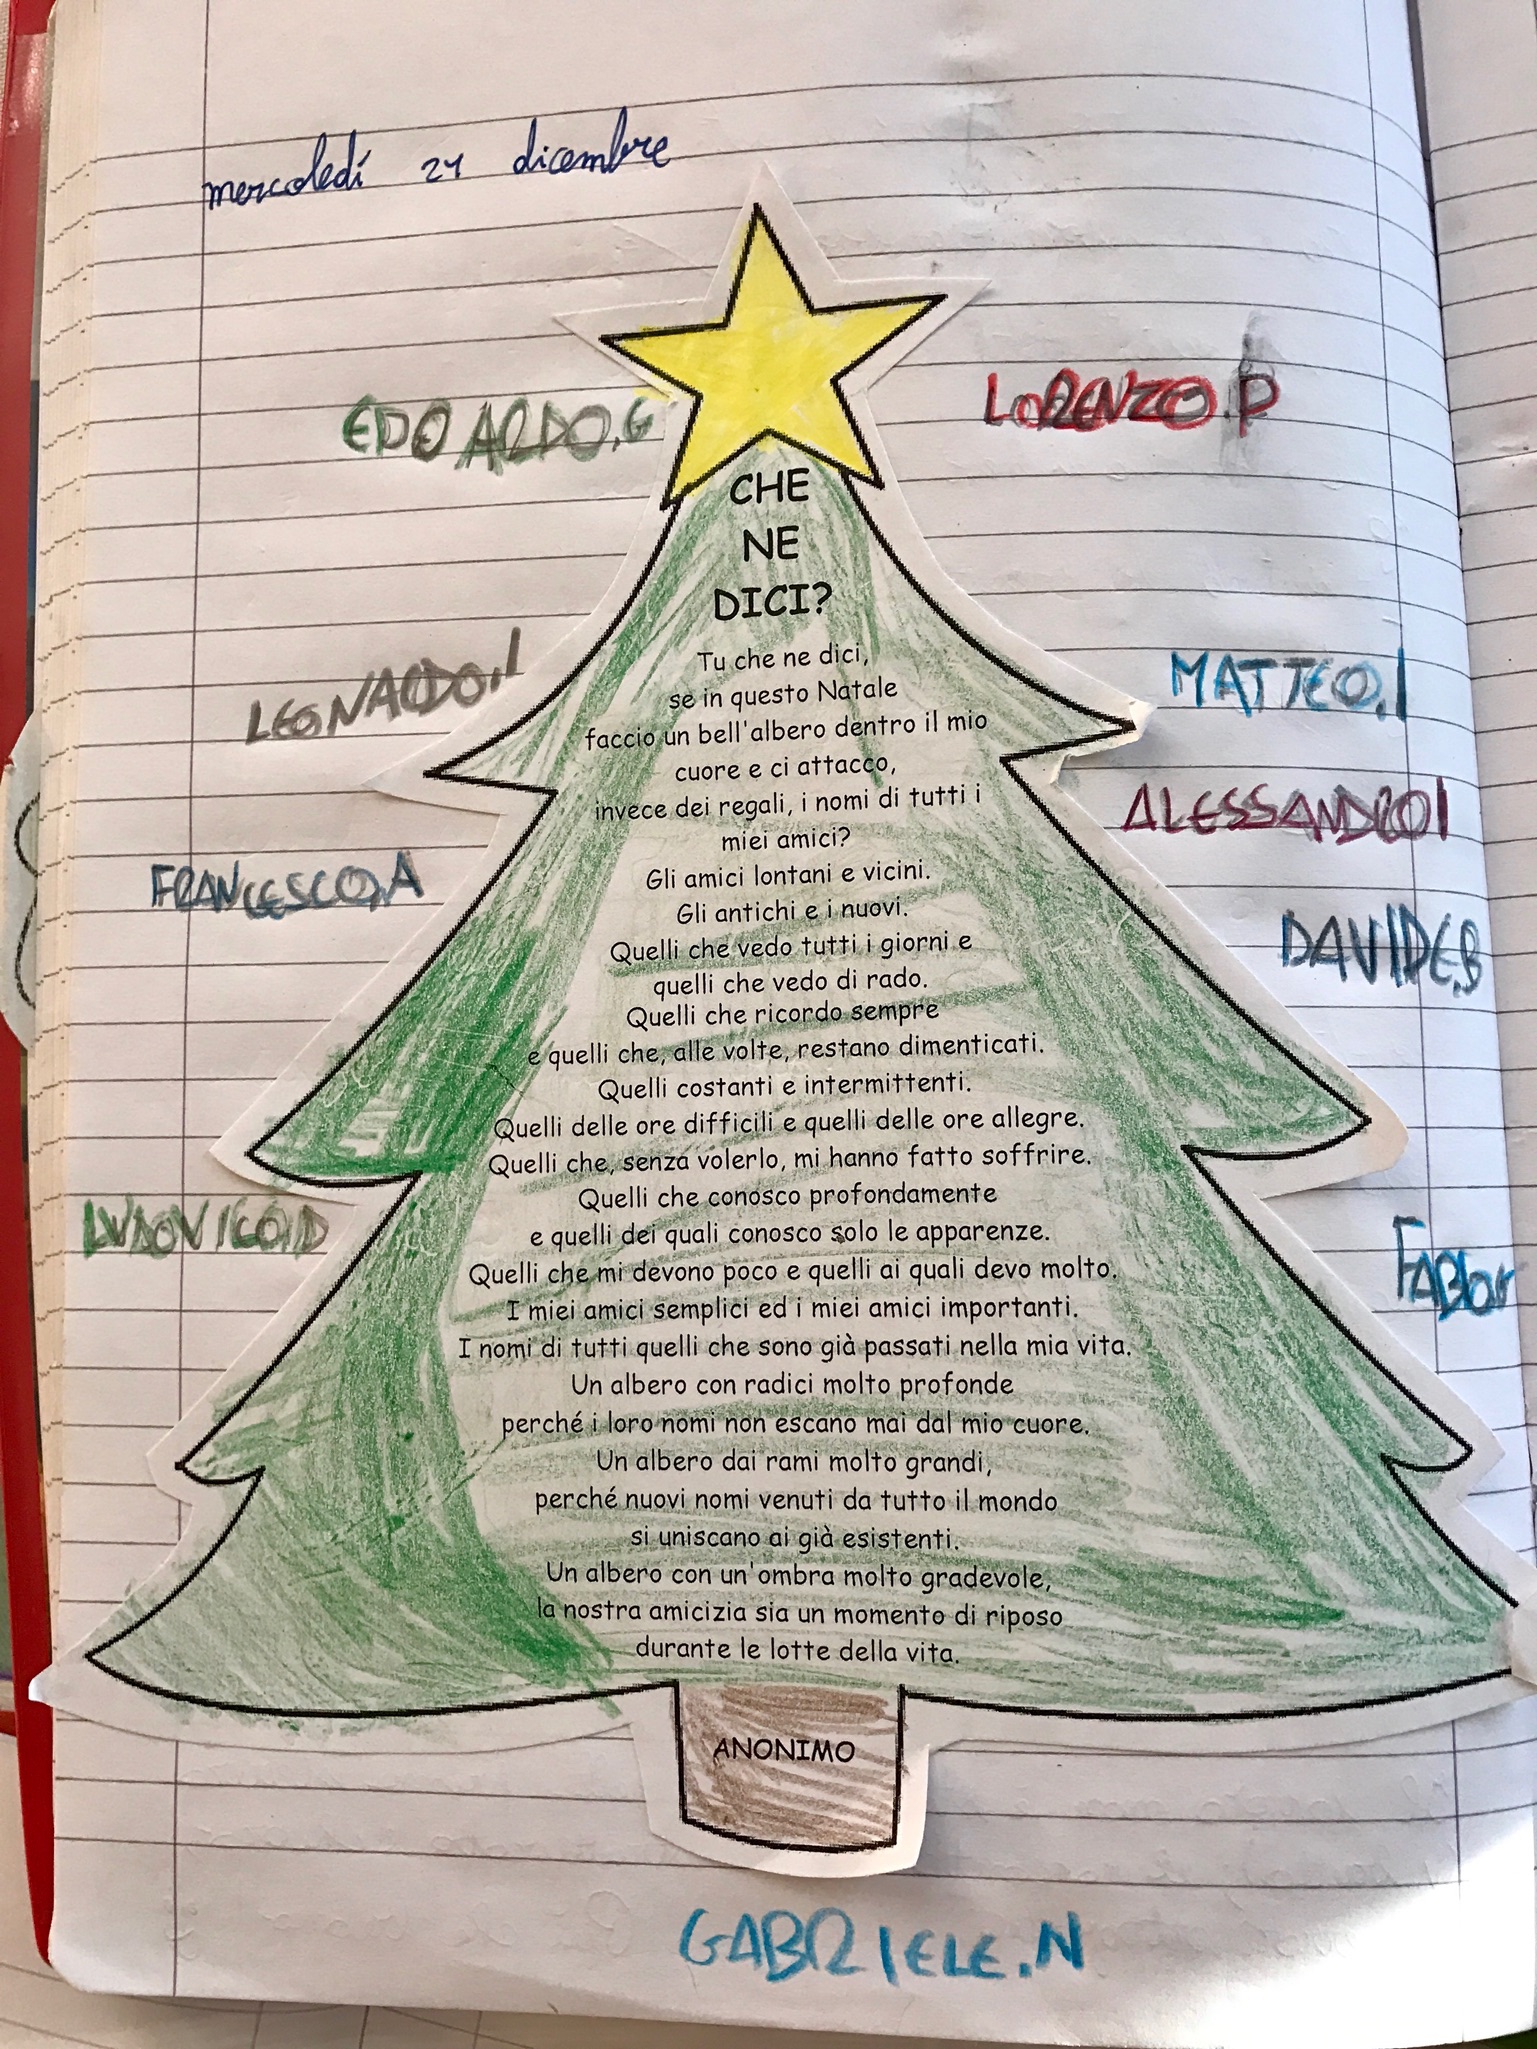 mercoledí 21 dicembre
EDOARDO.G
LORENZO.P
CHE
NE
DICI?
Tu che ne dici,
se in questo Natale
faccio un bell'albero dentro il mio
cuore e ci attacco,
invece dei regali, i nomi di tutti i
miei amici?
Gli amici lontani e vicini.
Gli antichi e i nuovi.
Quelli che vedo tutti i giorni e
quelli che vedo di rado.
Quelli che ricordo sempre
e quelli che, alle volte, restano dimenticati.
Quelli costanti e intermittenti.
Quelli delle ore difficili e quelli delle ore allegre.
Quelli che, senza volerlo, mi hanno fatto soffrire.
Quelli che conosco profondamente
e quelli dei quali conosco solo le apparenze.
Quelli che mi devono poco e quelli ai quali devo molto.
I miei amici semplici ed i miei amici importanti.
I nomi di tutti quelli che sono già passati nella mia vita.
Un albero con radici molto profonde
perché i loro nomi non escano mai dal mio cuore.
Un albero dai rami molto grandi,
perché nuovi nomi venuti da tutto il mondo
si uniscano ai già esistenti.
Un albero con un'ombra molto gradevole,
la nostra amicizia sia un momento di riposo
durante le lotte della vita.
ANONIMO
LEONARDO.I
MATTEO.I
ALESSANDRO I
FRANCESCO.A
DAVIDE.B
LUDOVICO.D
GABRIELE.N